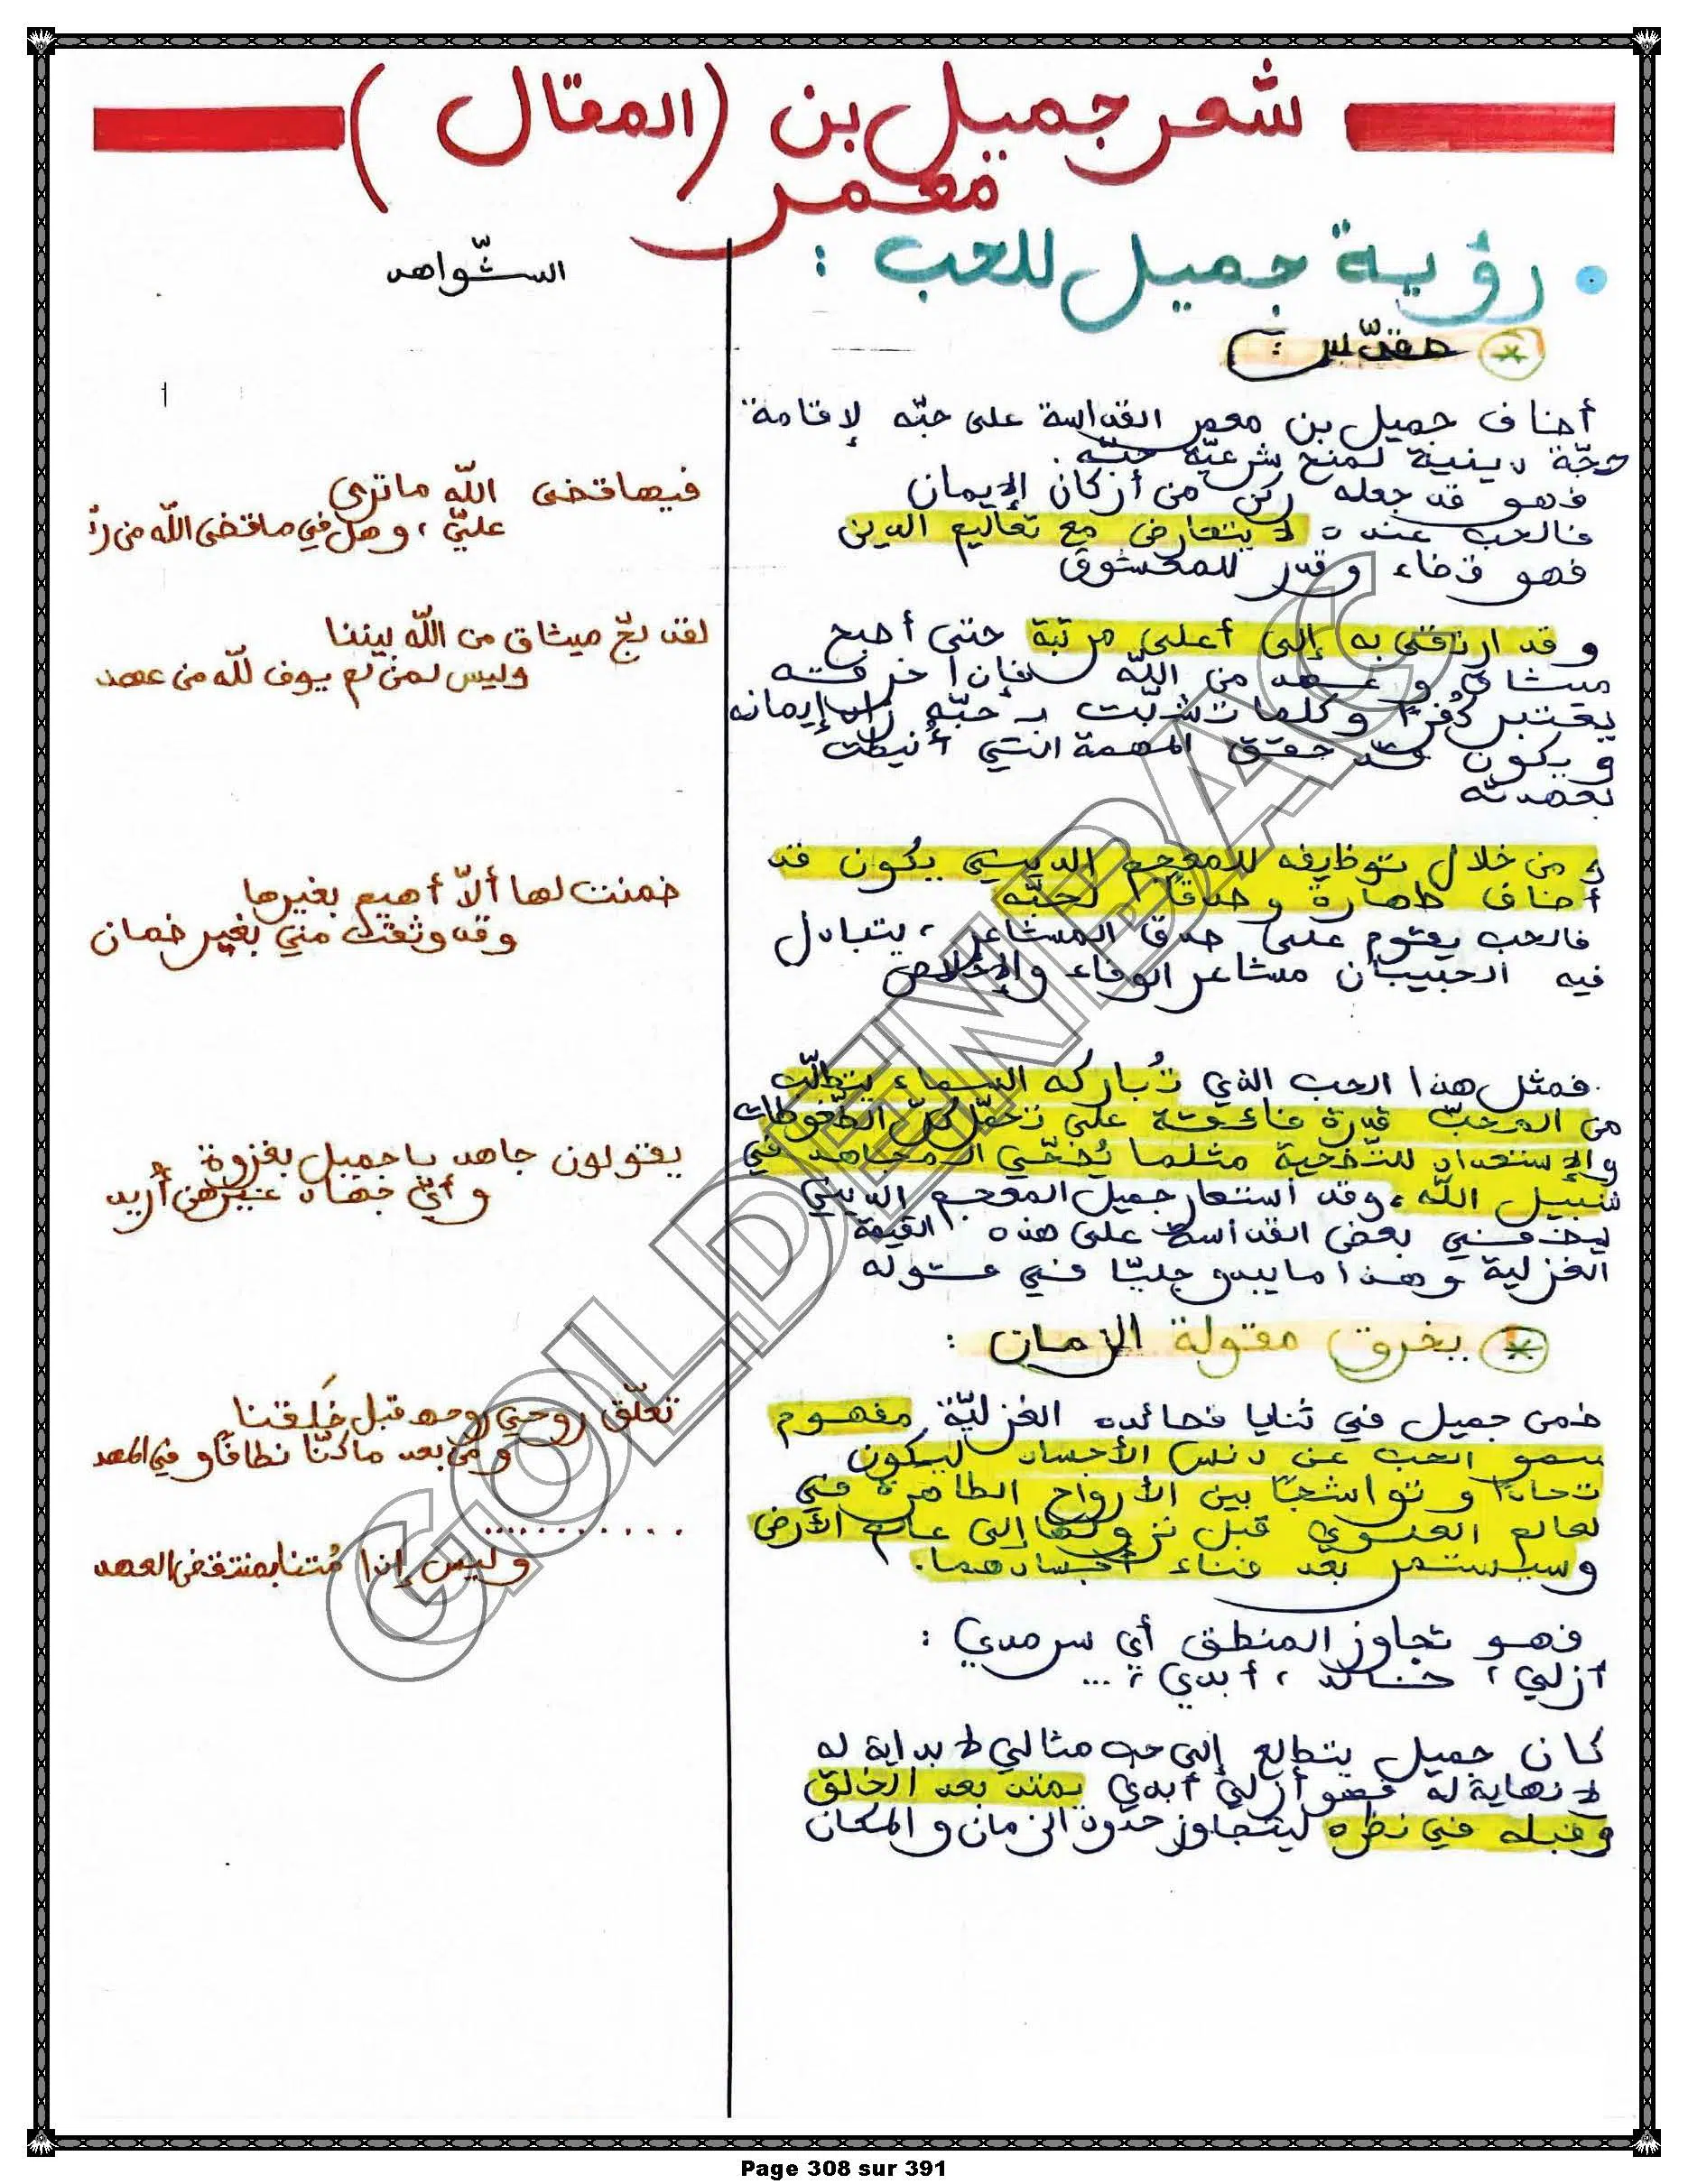 شعر جميل بن معمر (المقال)
• رؤية جميل للحب :
* مقدّس :
أضاف جميل بن معمر القداسة على حبّه لإقامة
حجّة دينية لمنح شرعيّة حبّه .
فهو قد جعله ركن من أركان الإيمان
فالحب عنده لا يتعارض مع تعاليم الدين
فهو قضاء وقدر للمعشوق
وقد ارتقى به إلى أعلى مرتبة حتى أصبح
ميثاق وعهد من اللّه فإن خرقته
يعتبر كُفرًا وكلما تشبّت بـ حبّه زاد إيمانه
ويكون قد حقق المهمة التي أنيطت
بعهدته
ومن خلال توظيفه للمعجم الديني يكون قد
أضاف طهارة وصدقًا لحبّه
فالحب يقوم على صدق المشاعر ، يتبادل
فيه الحبيبان مشاعر الوفاء والإخلاص
فمثل هذا الحب الذي تُباركه السماء يتطلّب
من المحبّ قدرة فائقة على تحمّل كلّ الضّغوطات
والإستعداد للتّضحية مثلما يُضحّي المجاهد في
سبيل اللّه ، وقد استعار جميل المعجم الديني
ليضفي بعض القداسة على هذه القيمة
الغزلية وهذا ما يبدو جليّا في قوله
* يخرق مقولة الزمان :
ضمن جميل في ثنايا قصائده الغزليّة مفهوم
سمو الحب عن دنس الأجساد ليكون
تحادًا وتواشجًا بين الأرواح الطاهرة في
لعالم العلوي قبل نزولها إلى عالم الأرض
وسيستمر بعد فناء أجسادهما .
فهو تجاوز المنطق أي سرمدي :
أزلي ، خالد ، أبدي ، ...
كان جميل يتطلع إلى حب مثالي لا بداية له
لا نهاية له فهو أزلي أبدي يمتد بعد الخلق
وقبله في نظره ليتجاوز حدود الزمان والمكان
الشّواهد
فيها قضى اللّه ما ترى
عليّ ، وهل في ما قضى اللّه من ردّ
لقد لجّ ميثاق من اللّه بيننا
وليس لمن لم يوف للّه من عهد
ضمنت لها ألاّ أهيم بغيرها
وقد وثقت مني بغير ضمان
يقولون جاهد يا جميل بغزوة
وأيّ جهاد غيرهن أريد
تعلّق روحي روحها قبل خَلقنا
ومن بعد ما كنّا نطافًا وفي المهد
...........
وليس إذا مُتنا بمنتقض العهد
GOLDENBAC
Page 308 sur 391